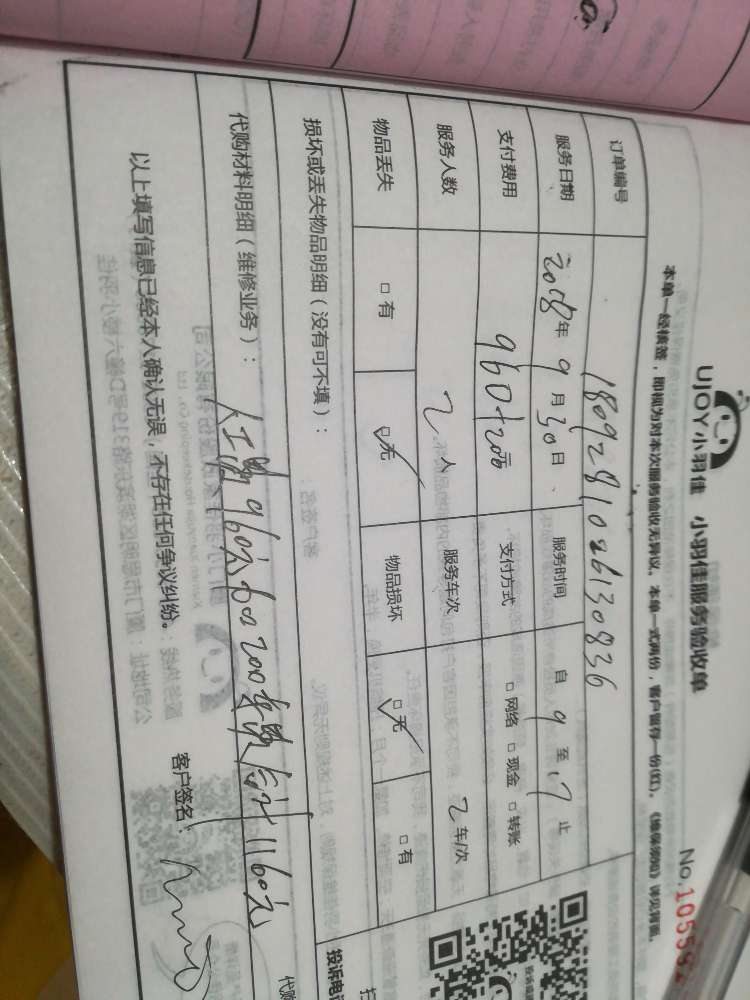 UJOY小羽佳 小羽佳服务验收单
No.10559
本单一经核签，即视为对本次服务验收无异议。本单一式两份，客户留存一份(红)。《维保须知》详见背面。
订单编号 1809281026130836
服务日期 2018年9月30日、 服务时间 自9至17止
支付费用 960+200元 支付方式 □网络 □现金 □转账
服务人数 2人 服务车次 2车/次
物品丢失 □有 □无 物品损坏 □无 □有
损坏或丢失物品明细（没有可不填）：
代购材料明细（维修业务）： 人工费960元 加200车费 合计1160元
以上填写信息已经本人确认无误，不存在任何争议纠纷。 客户签名：
投诉电
代购